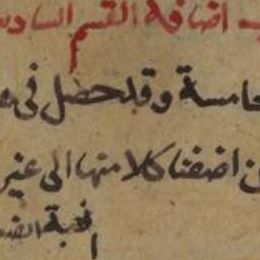 اضافة القسم السادس
خامسة وقد حصل فى
اضفنا كلا منها الى غير